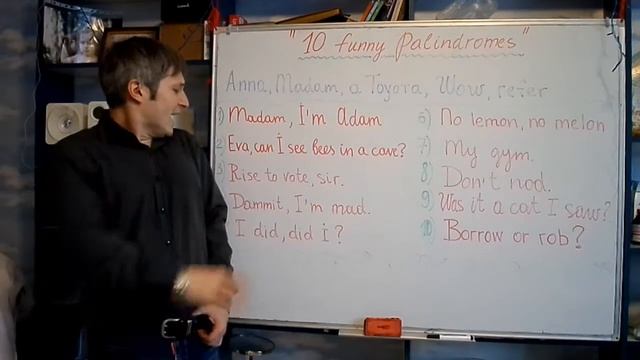 "10 funny Palindromes"
Anna, Madam, a Toyota, Wow, refer
1) Madam, I'm Adam
2 Eva, can I see bees in a cave?
3 Rise to vote, sir.
Dammit, I'm mad.
I did, did I?
6) No lemon, no melon
7) My gym.
8) Don't nod.
9. Was it a cat I saw?
10 Borrow or rob?